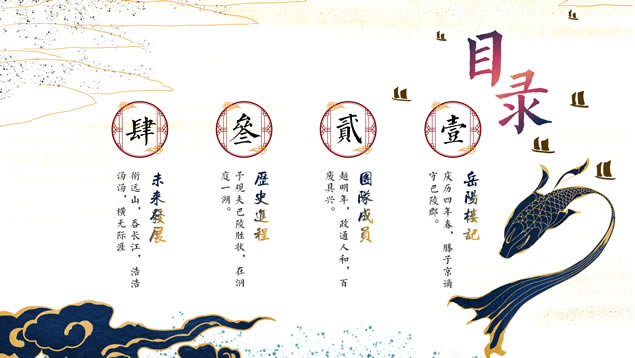 目录
壹
岳陽樓記
庆历四年春，滕子京谪
守巴陵郡。
貳
團隊成員
越明年，政通人和，百
废具兴。
叁
歷史進程
予观夫巴陵胜状，在洞
庭一湖。
肆
未来發展
衔远山，吞长江，浩浩
汤汤，横无际涯